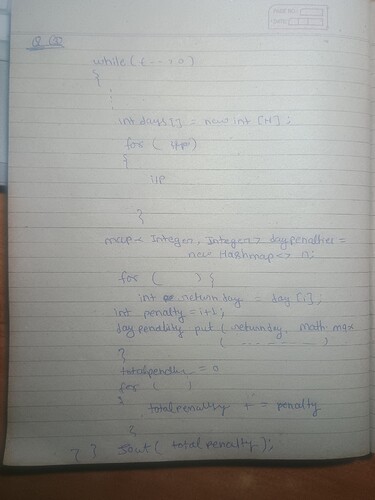 while(t -->0)
{
:
:
int days[] = new int [H];
for ( i/p)
{
i/p
}
map< Integer, Integer> daypenalties =
new Hashmap<> ();
for ( ) {
int returnday = day [i];
int penalty = i+1;
daypenality put ( returnday, math.max
( - - - - - - - )
}
= 0
for ( )
{
totalpenality + = penalty
}
} } Sout ( totalpenalty );